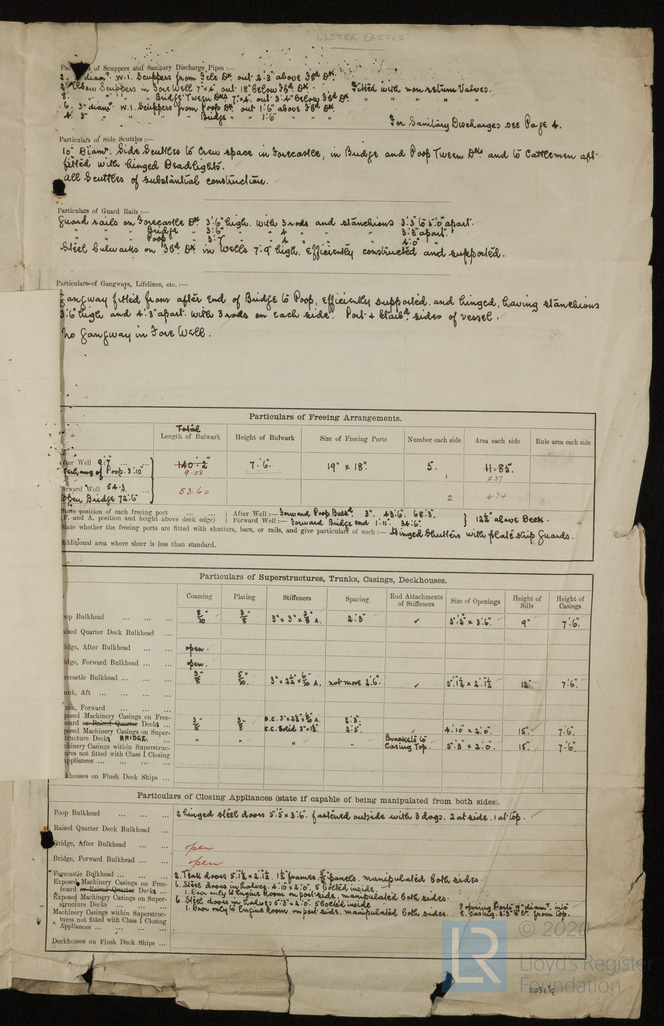 ULSTER CASTLE
Particulars of Scuppers and Sanitary Discharge Pipes :—
diamr. W.I. Scuppers from Fcle Dk out 2'3" above 3rd Dk.
Scuppers in Fore Well 7"x4" out 18" below 3rd Dk. Fitted with non return Valves.
Bridge 'Tween Dks 7"x4" out 3'4" below 3rd Dk " " " "
6. 3" diamr. W.I. Scuppers from Poop Dk out 1'6" above 3rd Dk
4. 3" " " " Bridge " 1'6"
For Sanitary Discharges see Page 4.
Particulars of Side Scuttles :—
10" Diamr. Side Scuttles to Crew space in Forecastle, in Bridge and Poop Tween Dks and to Cattlemen aft.
fitted with hinged Deadlights.
All Scuttles of substantial construction.
Particulars of Guard Rails :—
Guard rails on Forecastle Dk 3'6" high. with 3 rods and stanchions 3'3" to 5'0" apart.
" " " Bridge " 3'6" " " 4 " " " 3'8" apart
" " " Poop " 3'7" " " 4 " " " 4'0" "
Steel Bulwarks on 3rd Dk in Wells 7'9" high, efficiently constructed and supported.
Particulars of Gangways, Lifelines, etc. :—
Gangway fitted from after end of Bridge to Poop, efficiently supported, and hinged, having stanchions
3'6" high and 4'3" apart. with 3 rods on each side. Port & Starbd. sides of vessel.
No Gangway in Fore Well.
Particulars of Freeing Arrangements.
Total
Length of Bulwark Height of Bulwark Size of Freeing Ports Number each side Area each side Rule area each side
After Well 9.7 140'2" 7'6" 19" x 18" 5. 11.85
Overhang of Poop 3'10" 9.58 1 2.37
Forward Well 54.3 53.60 2 4.74
Open Bridge 72'6"
State position of each freeing port After Well :— Forward Poop Bulkd. 3". 43'6" 68'3".
(F. and A. position and height above deck edge) Forward Well :— Forward Bridge end 1'11". 34'6". 12½" above Deck.
State whether the freeing ports are fitted with shutters, bars, or rails, and give particulars of such :— Hinged Shutters with plate slip guards.
Additional area where sheer is less than standard.
Particulars of Superstructures, Trunks, Casings, Deckhouses.
Coaming Plating Stiffeners Spacing End Attachments of Stiffeners Size of Openings Height of Sills Height of Casings
Poop Bulkhead 2'3" ✓ 5'5" x 3'6" 9" 7'6"
Raised Quarter Deck Bulkhead
Bridge, After Bulkhead open.
Bridge, Forward Bulkhead open.
Forecastle Bulkhead not more 2'6" ✓ 5'1½" x 2'1½" 12" 7'6"
Trunk, Aft
Trunk, Forward
Exposed Machinery Casings on Freeboard or Raised Quarter Decks 2'5" 4'10" x 2'0" 15" 7'6"
Exposed Machinery Casings on Superstructure Decks BRIDGE. " " " " Brackets to Casing Top. 5'3" x 2'0" 15" 7'6"
Machinery Casings within Superstructures not fitted with Class 1 Closing Appliances
Deckhouses on Flush Deck Ships
Particulars of Closing Appliances (state if capable of being manipulated from both sides).
Poop Bulkhead 2 hinged steel doors 5'5" x 3'6". fastened outside with 3 dogs. 2 at side. 1 at top.
Raised Quarter Deck Bulkhead
Bridge, After Bulkhead open
Bridge, Forward Bulkhead open
Forecastle Bulkhead 2. Teak doors 5'1½" x 2'1½". 1½" frames. panels. manipulated both sides.
Exposed Machinery Casings on Freeboard or Raised Quarter Decks 6. Steel doors in halves. 4'10" x 2'0". 5 bolted inside.
1. Door only to Engine Room on port side. manipulated both sides.
Exposed Machinery Casings on Superstructure Decks 6. Steel doors in halves 5'3" x 2'0". 5 bolted inside
1. Door only to Engine Room on port side. manipulated both sides.
2 opening ports 9" diamr. into E. Casing. 2'3" to from top.
Machinery Casings within Superstructures not fitted with Class 1 Closing Appliances
Deckhouses on Flush Deck Ships
© 2020
LR
Lloyd's Register
Foundation